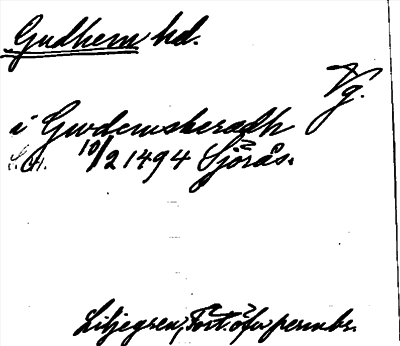 Gudhem hd.
Vg.
i Gwdemsheradh
10/2 1494 Sjörås.
Liljegren, Fört. öfv permbr.